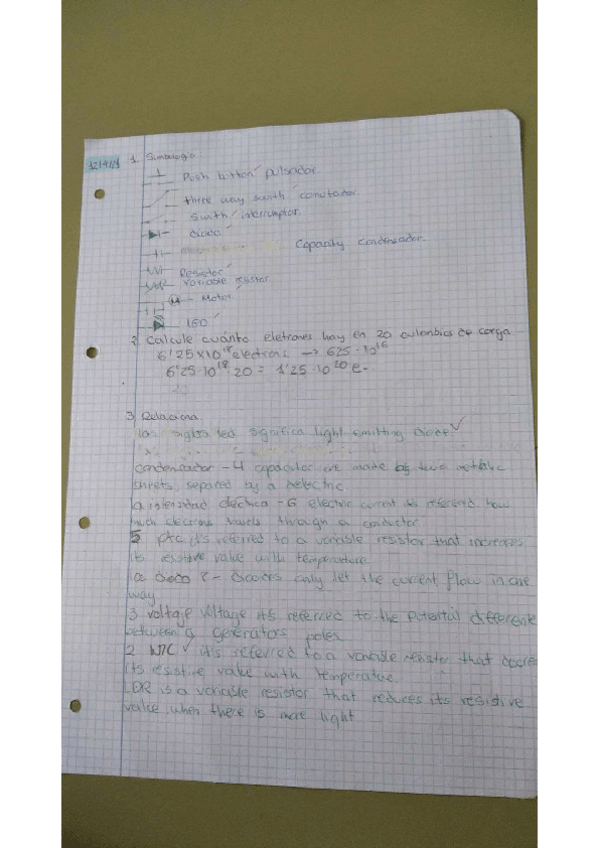 12/4/21
1. Simbología
Push button pulsador
three way swith conmutador
Swith interruptor
diodo
Capacity condensador
Resistor
variable resistor
M - Motor
LED
2 Calcule cuánto eletrones hay en 20 culombios de carga
6'25x10¹⁸ electrons → 625·10¹⁶
6'25·10¹⁸·20 = 1'25·10²⁰ e-
20
3 Relaciona
las siglas led significa light emitting diode
condensador - 4 capacitor are made by two metallic
sheets, separed by a dielectric
a intensidad electrica - 6 electric current it's referred how
much electrons travels through a conductor
5 ptc it's referred to a variable resistor that increases
its resistive value with temperature
diodo - diodes only let the current flow in one
way
3 voltaje Voltage it's referred to the Potential different
between a generators poles
2 NTC it's referred to a variable resistor that decre
its resistive value with temperature
LDR is a variable resistor that reduces its resistive
value, when there is more light